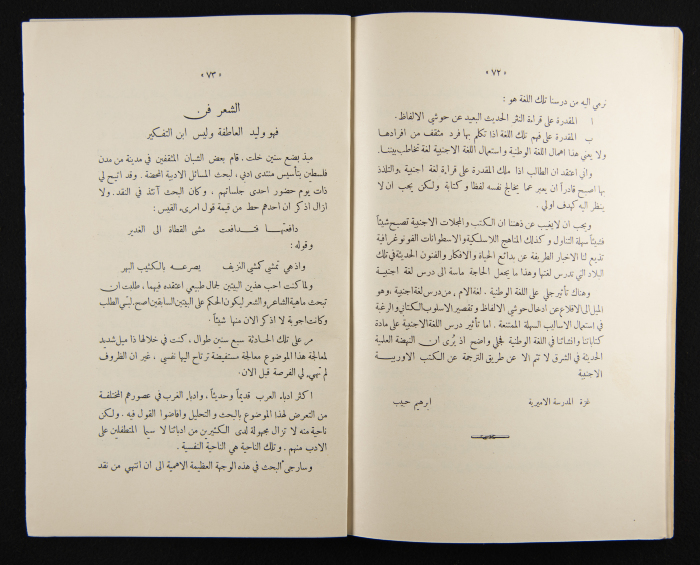 « ٧٢ »
نرمي اليه من درسنا تلك اللغة هو :
ا المقدرة على قراءة النثر الحديث البعيد عن حوشي الالفاظ.
ب المقدرة على فهم تلك اللغة اذا تكلم بها فرد مثقف من افرادها
ولا يعني هذا اهمال اللغة الوطنية واستعمال اللغة الاجنبية لغة تخاطب بيننا.
واني اعتقد ان الطالب اذا ملك المقدرة على قراءة لغة اجنبية ، والتلذذ
بها اصبح قادراً ان يعبر عما يخالج نفسه لفظا وكتابة ولكن يجب ان لا
ينظر اليه كهدف اولي .
ويجب ان لايغيب عن ذهننا ان الكتب والمجلات الاجنبية تصبح شيئاً
فشيئاً سهلة التناول وكذلك المناهج اللاسلكية والاسطوانات الفونوغرافية
تذيع لنا الاخبار الطريفة عن بدائع الحياة والافكار والفنون الحديثة في تلك
البلاد التي ندرس لغتها وهذا ما يجعل الحاجة ماسة الى درس لغة اجنبية
وهناك تأثير جلي على اللغة الوطنية . لغة الام ، من درس لغة اجنبية ، وهو
الميل الى الاقلاع عن ادخال حوشي الالفاظ وتقصير الاسلوب الكتابي والرغبة
في استعمال الاساليب السهلة الممتنعة . اما تأثير درس اللغة الاجنبية على مادة
كتاباتنا وانشائنا في اللغة الوطنية فجلي واضح اذ يُرى ان النهضة العلمية
الحديثة في الشرق لا تتم الا عن طريق الترجمة عن الكتب الاوربية
الاجنبية
غزة المدرسة الاميرية ابرهيم حبيب
« ٧٣ »
الشعر فن
فهو وليد العاطفة وليس ابن التفكير
منذ بضع سنين خلت ، قام بعض الشبان المثقفين في مدينة من مدن
فلسطين بتأسيس منتدى ادبي ، لبحث المسائل الادبية المحضة . وقد اتيح لي
ذات يوم حضور احدى جلساتهم ، وكان البحث آنئذ في النقد . ولا
ازال اذكر ان احدهم حط من قيمة قول امرىء القيس :
دافعتها فتدافعت مشي القطاة الى الغدير
وقوله :
واذ هي تمشي كمشي النزيف يصرعه بالكثيب البهر
ولما كنت احب هذين البيتين لجمال طبيعي اعتقده فيهما ، طلبت ان
تبحث ماهية الشاعر والشعر ليكون الحكم على البيتين السابقين اصح. لبّي الطلب
وكانت اجوبة لا اذكر الان منها شيئاً .
مر على تلك الحادثة سبع سنين طوال ، كنت في خلالها ذا ميل شديد
لمعالجة هذا الموضوع معالجة مستفيضة ترتاح اليها نفسي ، غير ان الظروف
لم تهيء لي الفرصة قبل الان.
اكثر ادباء العرب قديماً وحديثاً ، وادباء الغرب في عصورهم المختلفة
من التعرض لهذا الموضوع بالبحث والتحليل وافاضوا القول فيه . ولكن
ناحية منه لا تزال مجهولة لدى الكثيرين من ادبائنا لا سيما المتطفلين على
الادب منهم ، وتلك الناحية هي الناحية النفسية .
وسارجىء البحث في هذه الوجهة العظيمة الاهمية الى ان انتهي من نقد